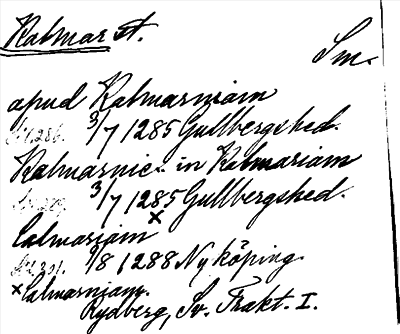 Kalmar st.
Sm.
apud Kalmarniam
3/7 1285 Gullbergshed.
Kalmarnie.. in Kalmariam
3/7 1285 Gullbergshed.
x
Calmarjam
3/8 1288 Nyköping.
x Calmarniam.
Rydberg, Sv. Trakt. I.